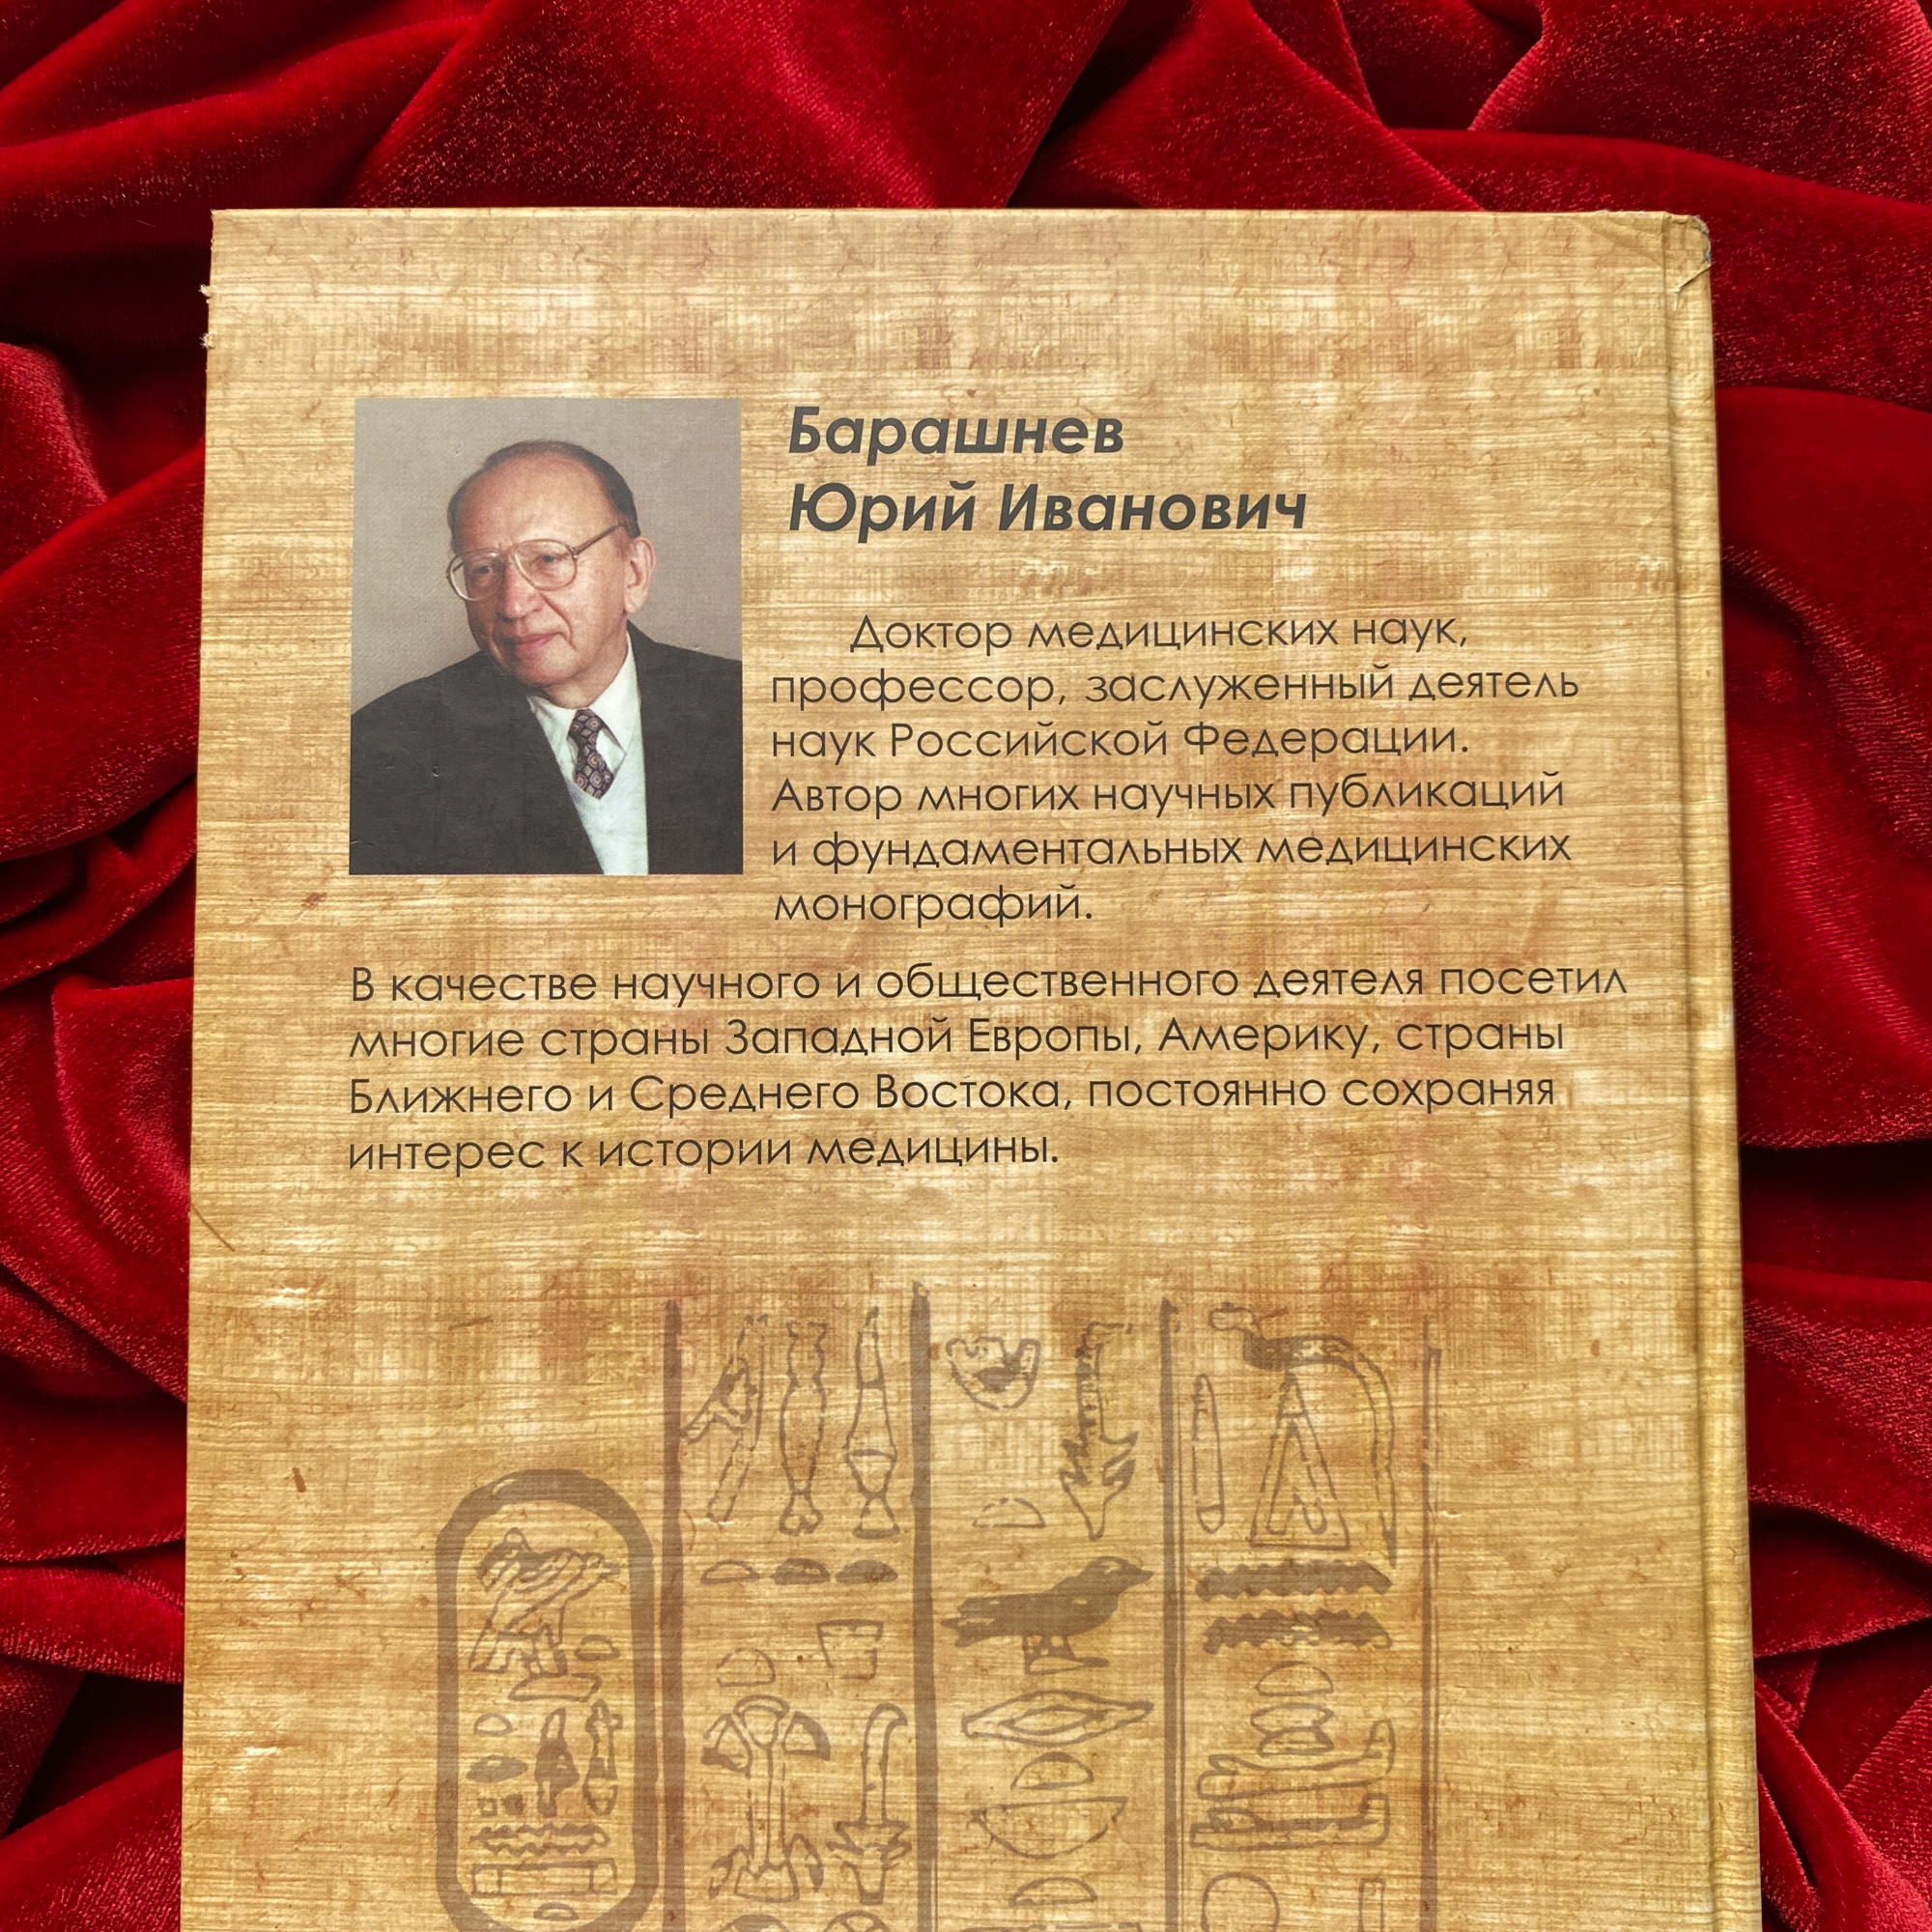 Барашнев
Юрий Иванович
Доктор медицинских наук,
профессор, заслуженный деятель
наук Российской Федерации.
Автор многих научных публикаций
и фундаментальных медицинских
монографий.
В качестве научного и общественного деятеля посетил
многие страны Западной Европы, Америку, страны
Ближнего и Среднего Востока, постоянно сохраняя
интерес к истории медицины.